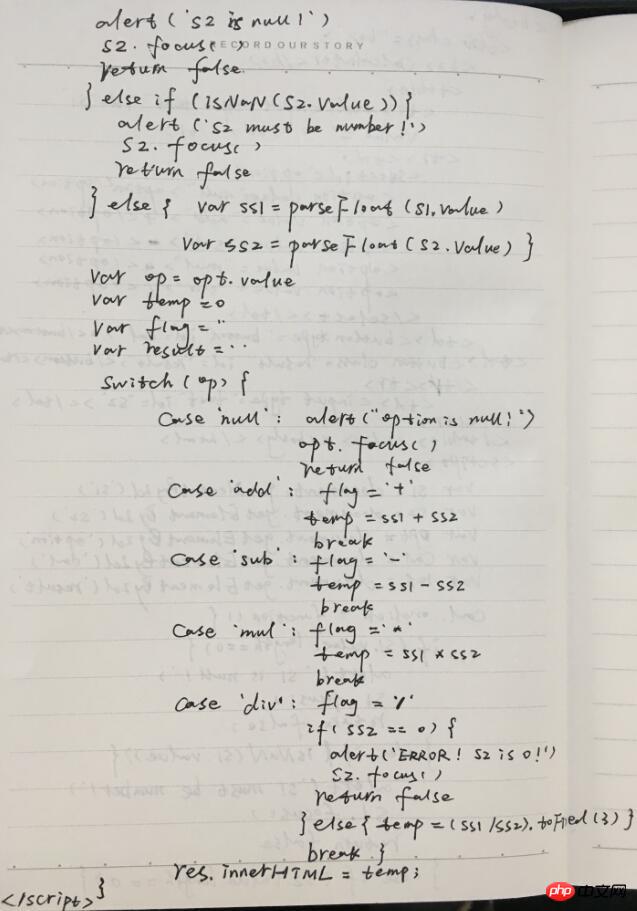 alert('S2 is null!')
S2.focus()
RECORD OUR STORY
return false
} else if (isNaN(S2.value)){
alert('S2 must be number!')
S2.focus()
return false
} else { var ss1 = parseFloat(S1.value)
var ss2 = parseFloat(S2.value) }
var op = opt.value
var temp = 0
var flag = ''
var result = ''
switch(op) {
case 'null': alert("option is null!")
opt.focus()
return false
case 'add': flag = '+'
temp = ss1 + ss2
break
case 'sub': flag = '-'
temp = ss1 - ss2
break
case 'mul': flag = '*'
temp = ss1 * ss2
break
case 'div': flag = '/'
if(ss2 == 0) {
alert('ERROR! S2 is 0!')
S2.focus()
return false
} else { temp = (ss1/ss2).toFixed(3) }
break }
res.innerHTML = temp;
</script> }
php中文网